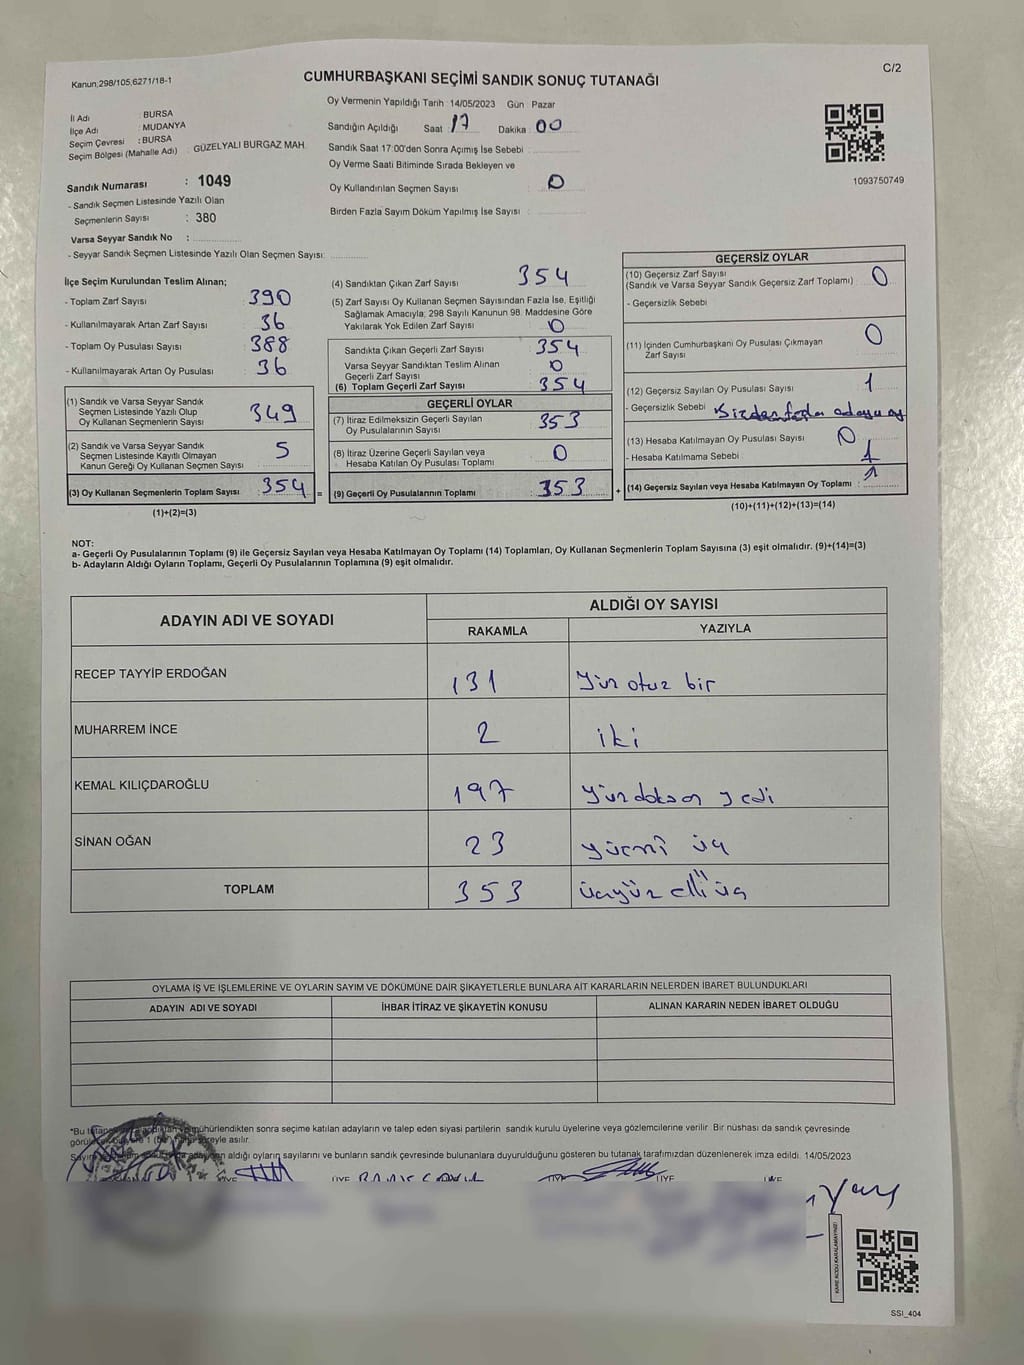 C/2
Kanun:298/105,6271/18-1
CUMHURBAŞKANI SEÇİMİ SANDIK SONUÇ TUTANAĞI
İl Adı : BURSA
İlçe Adı : MUDANYA
Seçim Çevresi : BURSA
Seçim Bölgesi (Mahalle Adı) : GÜZELYALI BURGAZ MAH.
Oy Vermenin Yapıldığı Tarih : 14/05/2023 Gün : Pazar
Sandığın Açıldığı Saat : 17 Dakika : 00
Sandık Saat 17:00'den Sonra Açımış İse Sebebi :
Oy Verme Saati Bitiminde Sırada Bekleyen ve
Oy Kullandırılan Seçmen Sayısı : 0
Birden Fazla Sayım Döküm Yapılmış İse Sayısı :
1093750749
Sandık Numarası : 1049
- Sandık Seçmen Listesinde Yazılı Olan
Seçmenlerin Sayısı : 380
Varsa Seyyar Sandık No :
- Seyyar Sandık Seçmen Listesinde Yazılı Olan Seçmen Sayısı:
İlçe Seçim Kurulundan Teslim Alınan;
- Toplam Zarf Sayısı : 390
- Kullanılmayarak Artan Zarf Sayısı : 36
- Toplam Oy Pusulası Sayısı : 388
- Kullanılmayarak Artan Oy Pusulası : 36
(1) Sandık ve Varsa Seyyar Sandık
Seçmen Listesinde Yazılı Olup
Oy Kullanan Seçmenlerin Sayısı : 349
(2) Sandık ve Varsa Seyyar Sandık
Seçmen Listesinde Kayıtlı Olmayan
Kanun Gereği Oy Kullanan Seçmen Sayısı : 5
(3) Oy Kullanan Seçmenlerin Toplam Sayısı : 354 =
(1)+(2)=(3)
(4) Sandıktan Çıkan Zarf Sayısı : 354
(5) Zarf Sayısı Oy Kullanan Seçmen Sayısından Fazla İse, Eşitliği
Sağlamak Amacıyla; 298 Sayılı Kanunun 98. Maddesine Göre
Yakılarak Yok Edilen Zarf Sayısı : 0
Sandıkta Çıkan Geçerli Zarf Sayısı : 354
Varsa Seyyar Sandıktan Teslim Alınan
Geçerli Zarf Sayısı : 0
(6) Toplam Geçerli Zarf Sayısı : 354
GEÇERLİ OYLAR
(7) İtiraz Edilmeksizin Geçerli Sayılan
Oy Pusulalarının Sayısı : 353
(8) İtiraz Üzerine Geçerli Sayılan veya
Hesaba Katılan Oy Pusulası Toplamı : 0
(9) Geçerli Oy Pusulalarının Toplamı : 353 +
GEÇERSİZ OYLAR
(10) Geçersiz Zarf Sayısı
(Sandık ve Varsa Seyyar Sandık Geçersiz Zarf Toplamı) : 0
- Geçersizlik Sebebi
(11) İçinden Cumhurbaşkanı Oy Pusulası Çıkmayan
Zarf Sayısı : 0
(12) Geçersiz Sayılan Oy Pusulası Sayısı : 1
- Geçersizlik Sebebi Birden fazla adaya oy
(13) Hesaba Katılmayan Oy Pusulası Sayısı : 0
- Hesaba Katılmama Sebebi 1
(14) Geçersiz Sayılan veya Hesaba Katılmayan Oy Toplamı : 1
(10)+(11)+(12)+(13)=(14)
NOT:
a- Geçerli Oy Pusulalarının Toplamı (9) ile Geçersiz Sayılan veya Hesaba Katılmayan Oy Toplamı (14) Toplamları, Oy Kullanan Seçmenlerin Toplam Sayısına (3) eşit olmalıdır. (9)+(14)=(3)
b- Adayların Aldığı Oyların Toplamı, Geçerli Oy Pusulalarının Toplamına (9) eşit olmalıdır.
ADAYIN ADI VE SOYADI ALDIĞI OY SAYISI
RAKAMLA YAZIYLA
RECEP TAYYİP ERDOĞAN 131 Yüz otuz bir
MUHARREM İNCE 2 iki
KEMAL KILIÇDAROĞLU 197 Yüz doksan yedi
SİNAN OĞAN 23 yirmi üç
TOPLAM 353 üçyüz elli üç
OYLAMA İŞ VE İŞLEMLERİNE VE OYLARIN SAYIM VE DÖKÜMÜNE DAİR ŞİKAYETLERLE BUNLARA AİT KARARLARIN NELERDEN İBARET BULUNDUKLARI
ADAYIN ADI VE SOYADI İHBAR İTİRAZ VE ŞİKAYETİN KONUSU ALINAN KARARIN NEDEN İBARET OLDUĞU
*Bu mühürlendikten sonra seçime katılan adayların ve talep eden siyasi partilerin sandık kurulu üyelerine veya gözlemcilerine verilir. Bir nüshası da sandık çevresinde
süreyle asılır.
aldığı oyların sayılarını ve bunların sandık çevresinde bulunanlara duyurulduğunu gösteren bu tutanak tarafımızdan düzenlenerek imza edildi. 14/05/2023
ÜYE ÜYE ÜYE ÜYE ÜYE
KARE KODU KARALAMAYINIZ!
SSI_404